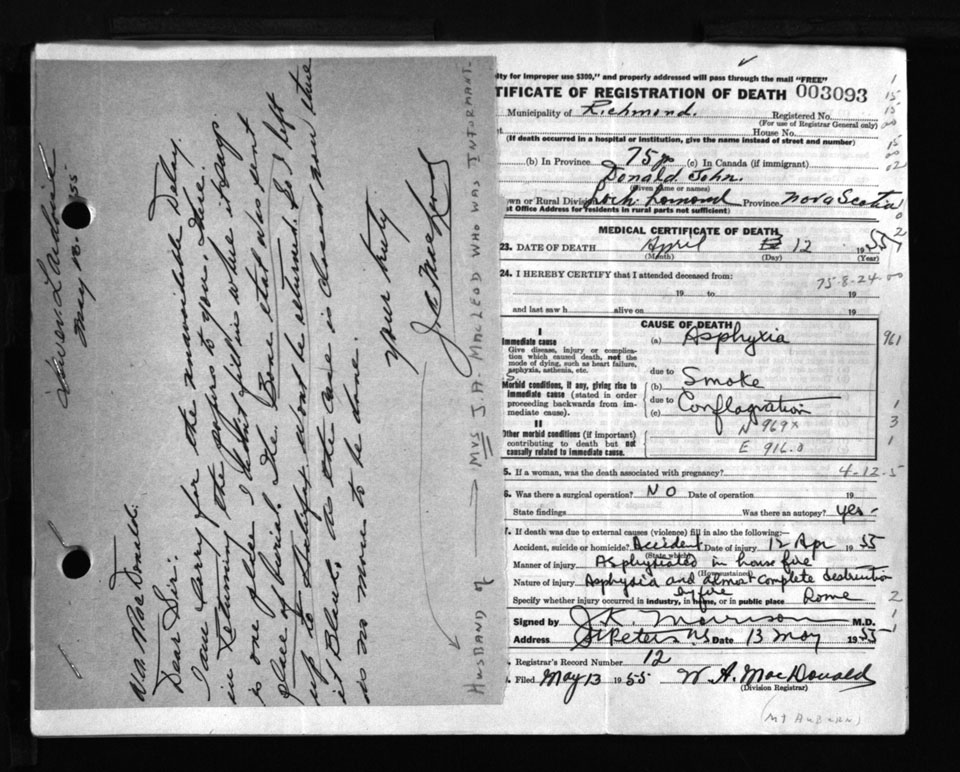 answered Laddie
May 10. 55
Wa. MacDonald.
Dear Sir:
I am sorry for the unavoidable Delay
in Returning the papers to you. There
is one place I didnt fill in where it says
place of burial. The Bone that was sent
up to Halifax wont be returned. So I left
it Blank. as the case is closed now there
is no more to be done.
your truly
J. A. MacLeod
HUSBAND of → MRS J. A. MACLEOD WHO WAS INFORMANT
ty for improper use $300," and properly addressed will pass through the mail "FREE"
TIFICATE OF REGISTRATION OF DEATH 003093
Municipality of Richmond. Registered No.
(For use of Registrar General only)
House No.
(If death occurred in a hospital or institution, give the name instead of street and number)
(b) In Province 75 yr (c) In Canada (if immigrant)
Donald John.
(Given name or names)
own or Rural Division Loch Lomond Province Nova Scotia
st Office Address for residents in rural parts not sufficient)
MEDICAL CERTIFICATE OF DEATH
23. DATE OF DEATH April 12 1955
(Month) (Day) (Year)
24. I HEREBY CERTIFY that I attended deceased from:
75-8-24-00
19 to 19
and last saw h alive on 19
CAUSE OF DEATH
I
Immediate cause
Give disease, injury or complication which caused death, not the mode of dying, such as heart failure, asphyxia, asthenia, etc.
(a) Asphyxia 961
due to
Morbid conditions, if any, giving rise to immediate cause (stated in order proceeding backwards from immediate cause).
(b) Smoke
due to
(c) Conflagration
II
N 969x
Other morbid conditions (if important) contributing to death but not causally related to immediate cause.
E 916.0
5. If a woman, was the death associated with pregnancy? 4-12-5
6. Was there a surgical operation? NO Date of operation 19
State findings Was there an autopsy? yes-
7. If death was due to external causes (violence) fill in also the following:
Accident, suicide or homicide? Accident Date of injury 12 Apr 1955
(State which)
Manner of injury Asphyxiated in house fire
(How sustained)
Nature of injury Asphyxia and almost complete destruction
by fire
Specify whether injury occurred in industry, in home, or in public place Home 2
Signed by J. K. Morrison M.D.
Address St Peters NS Date 13 May 1955
Registrar's Record Number 12
Filed May 13 1955 W. A. MacDonald
(Division Registrar)
(MT AUBURN)